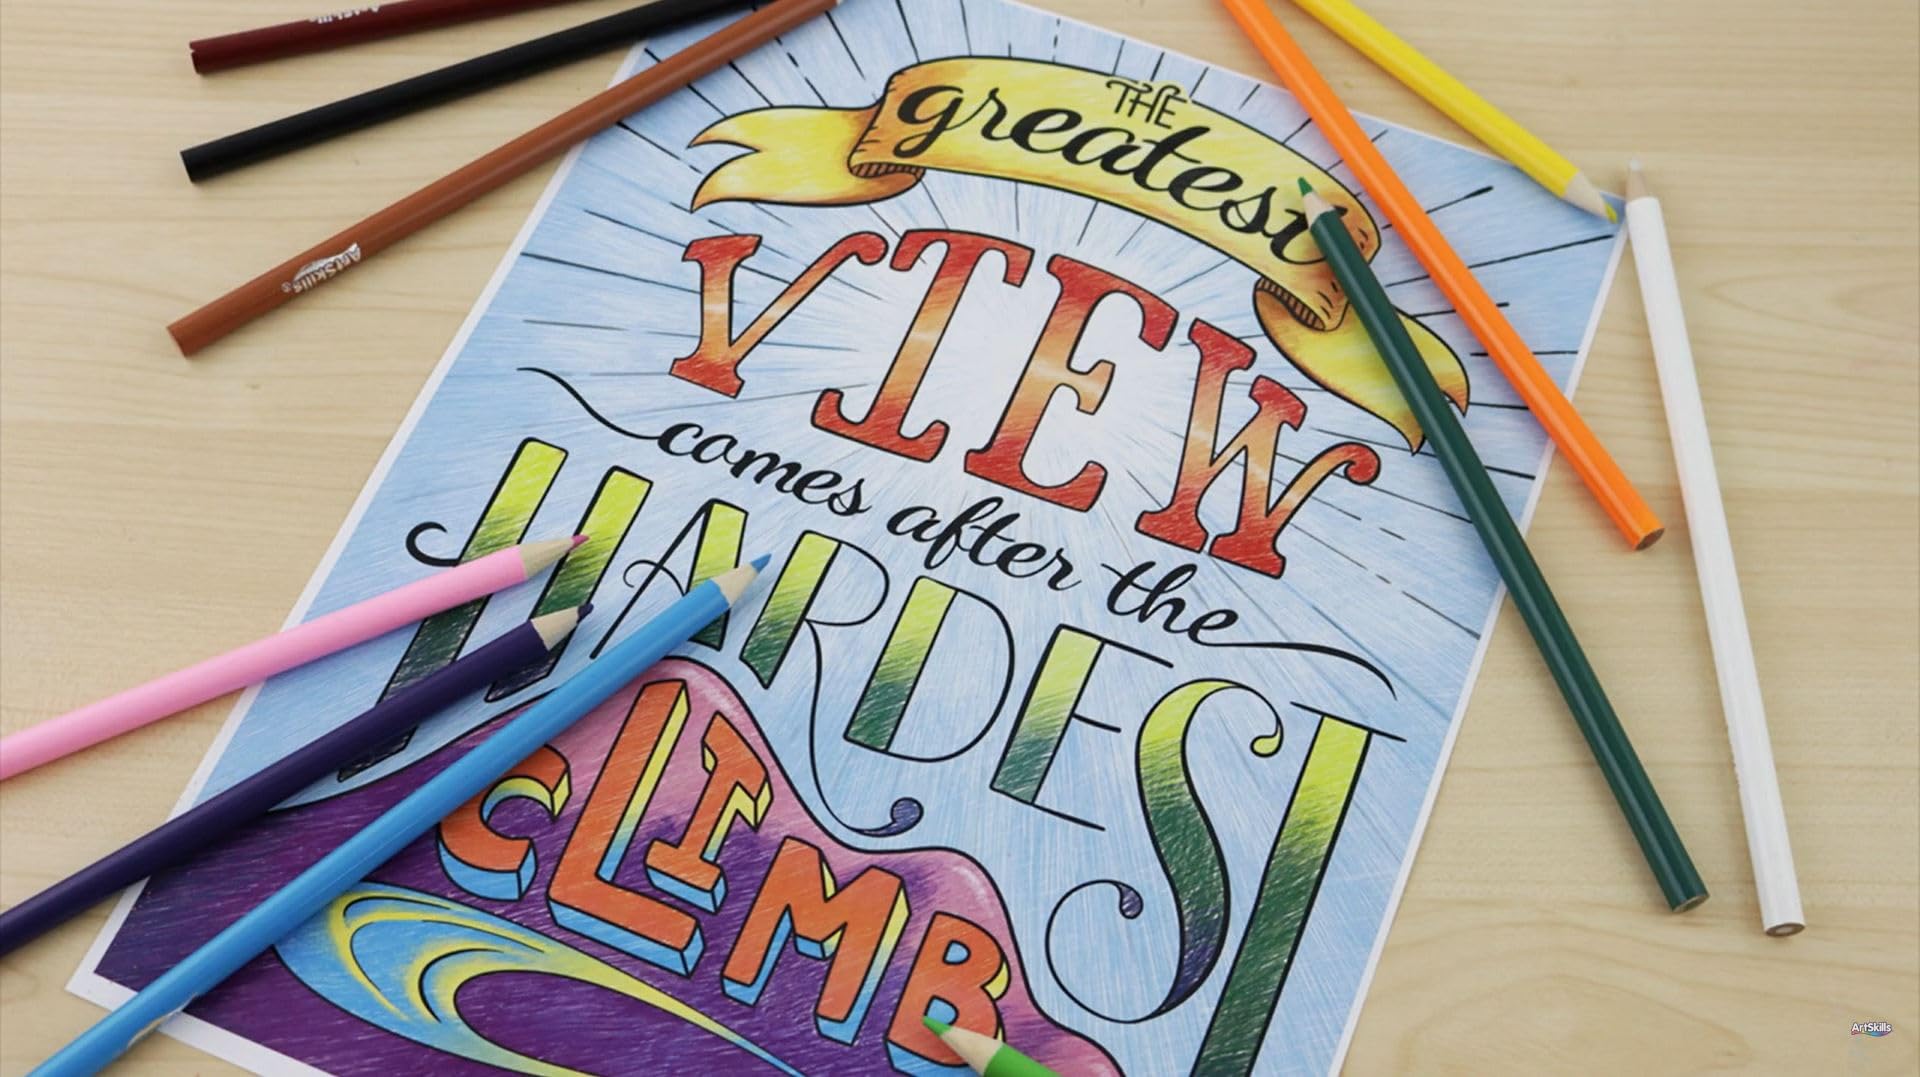 THE
greatest
VIEW
comes after the
HARDEST
CLIMB
ArtSkills
ArtSkills
ArtSkills